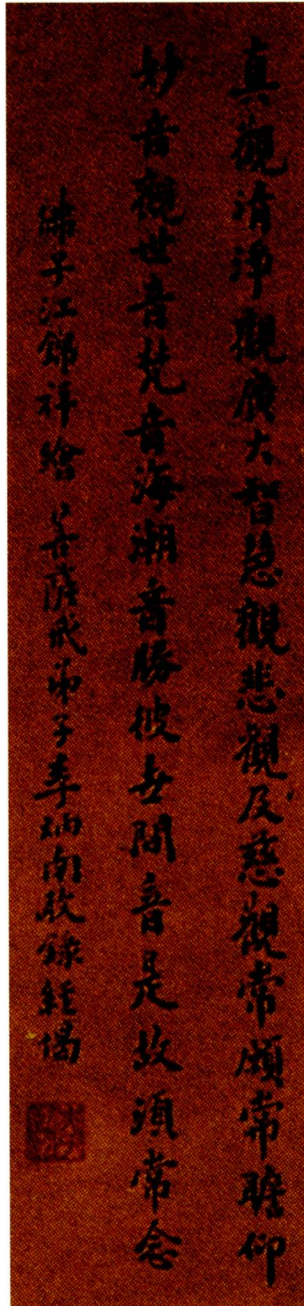 真觀清淨觀廣大智慧觀悲觀及慈觀常願常瞻仰
妙音觀世音梵音海潮音勝彼世間音是故須常念
佛子江錦祥繪 菩薩戒弟子李炳南敬錄經偈